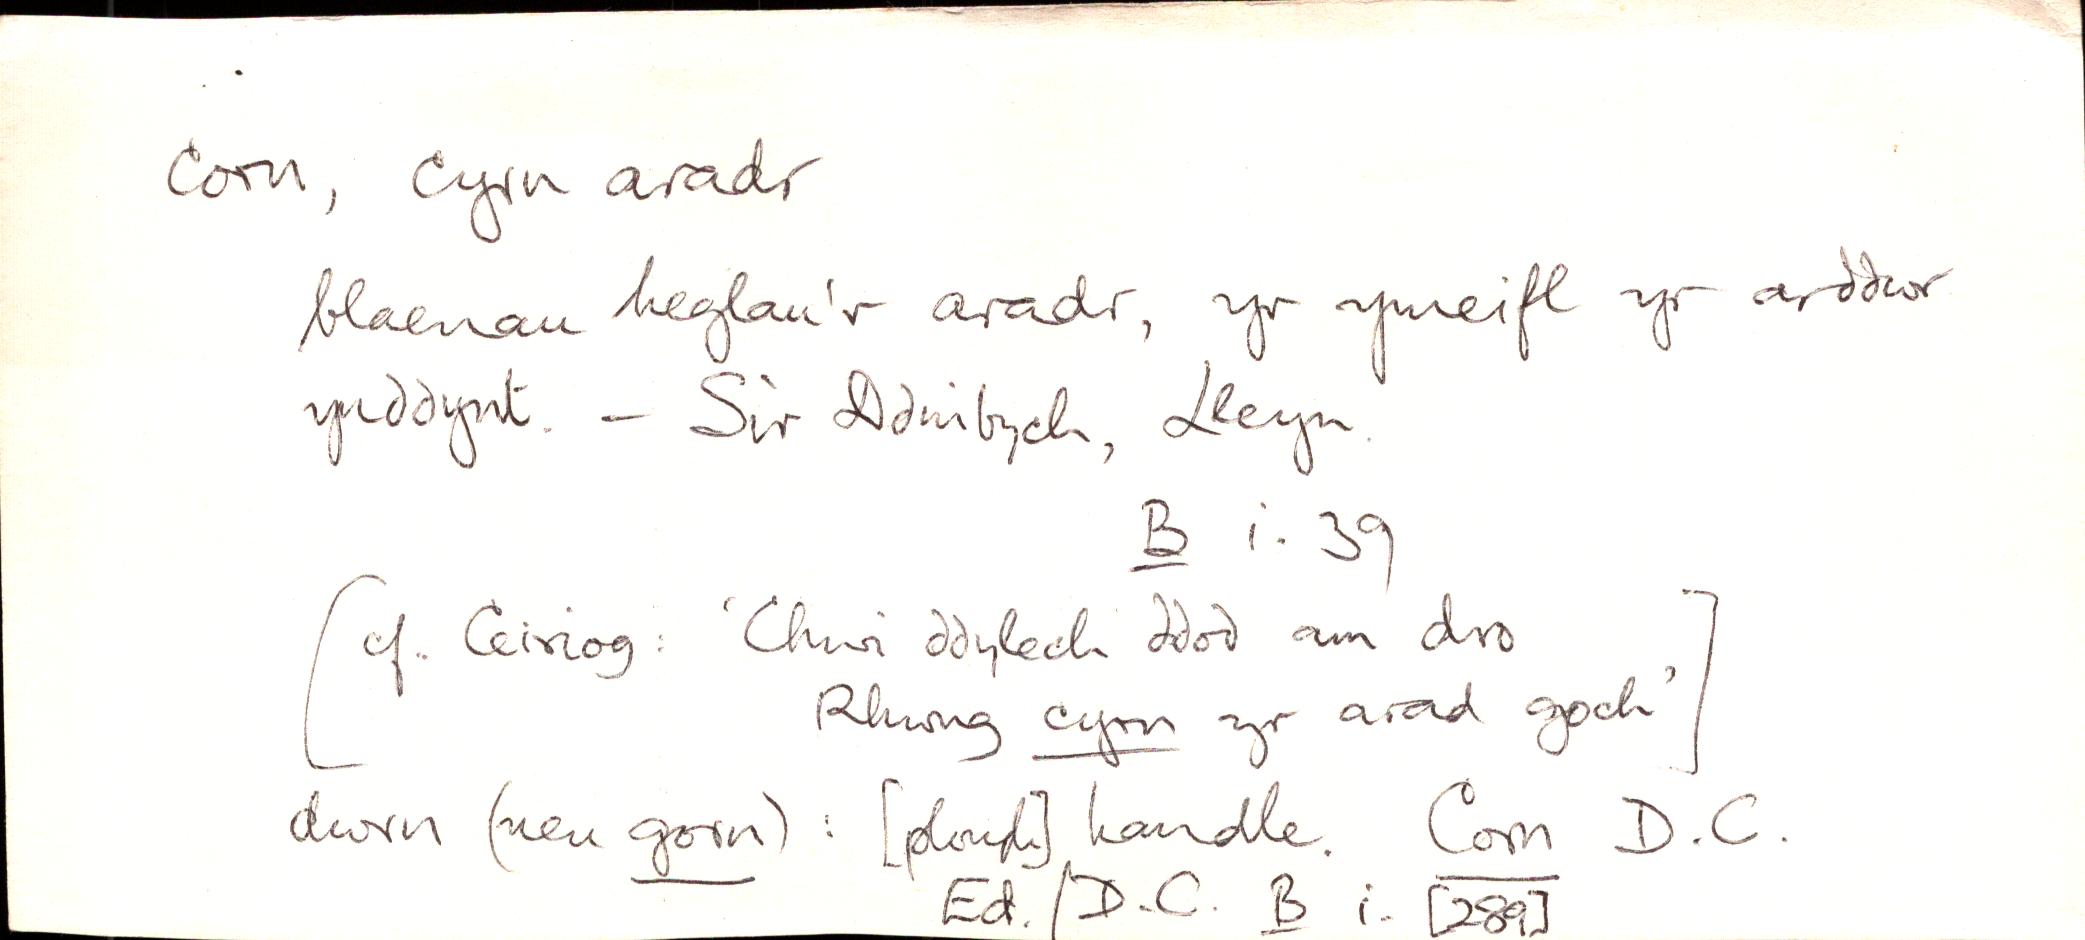 Corn, cyrn aradr
blaenau heglau'r aradr, yr ymeifl yr arddwr
ynddynt. – Sir Ddinbych, Lleyn.
B i. 39
[cf. Ceiriog: 'Chwi ddylech ddod am dro
Rhwng cyrn yr arad goch',]
dwrn (neu gorn) : [plough] handle. Corn D.C.
Ed. / D.C. B i. [289]